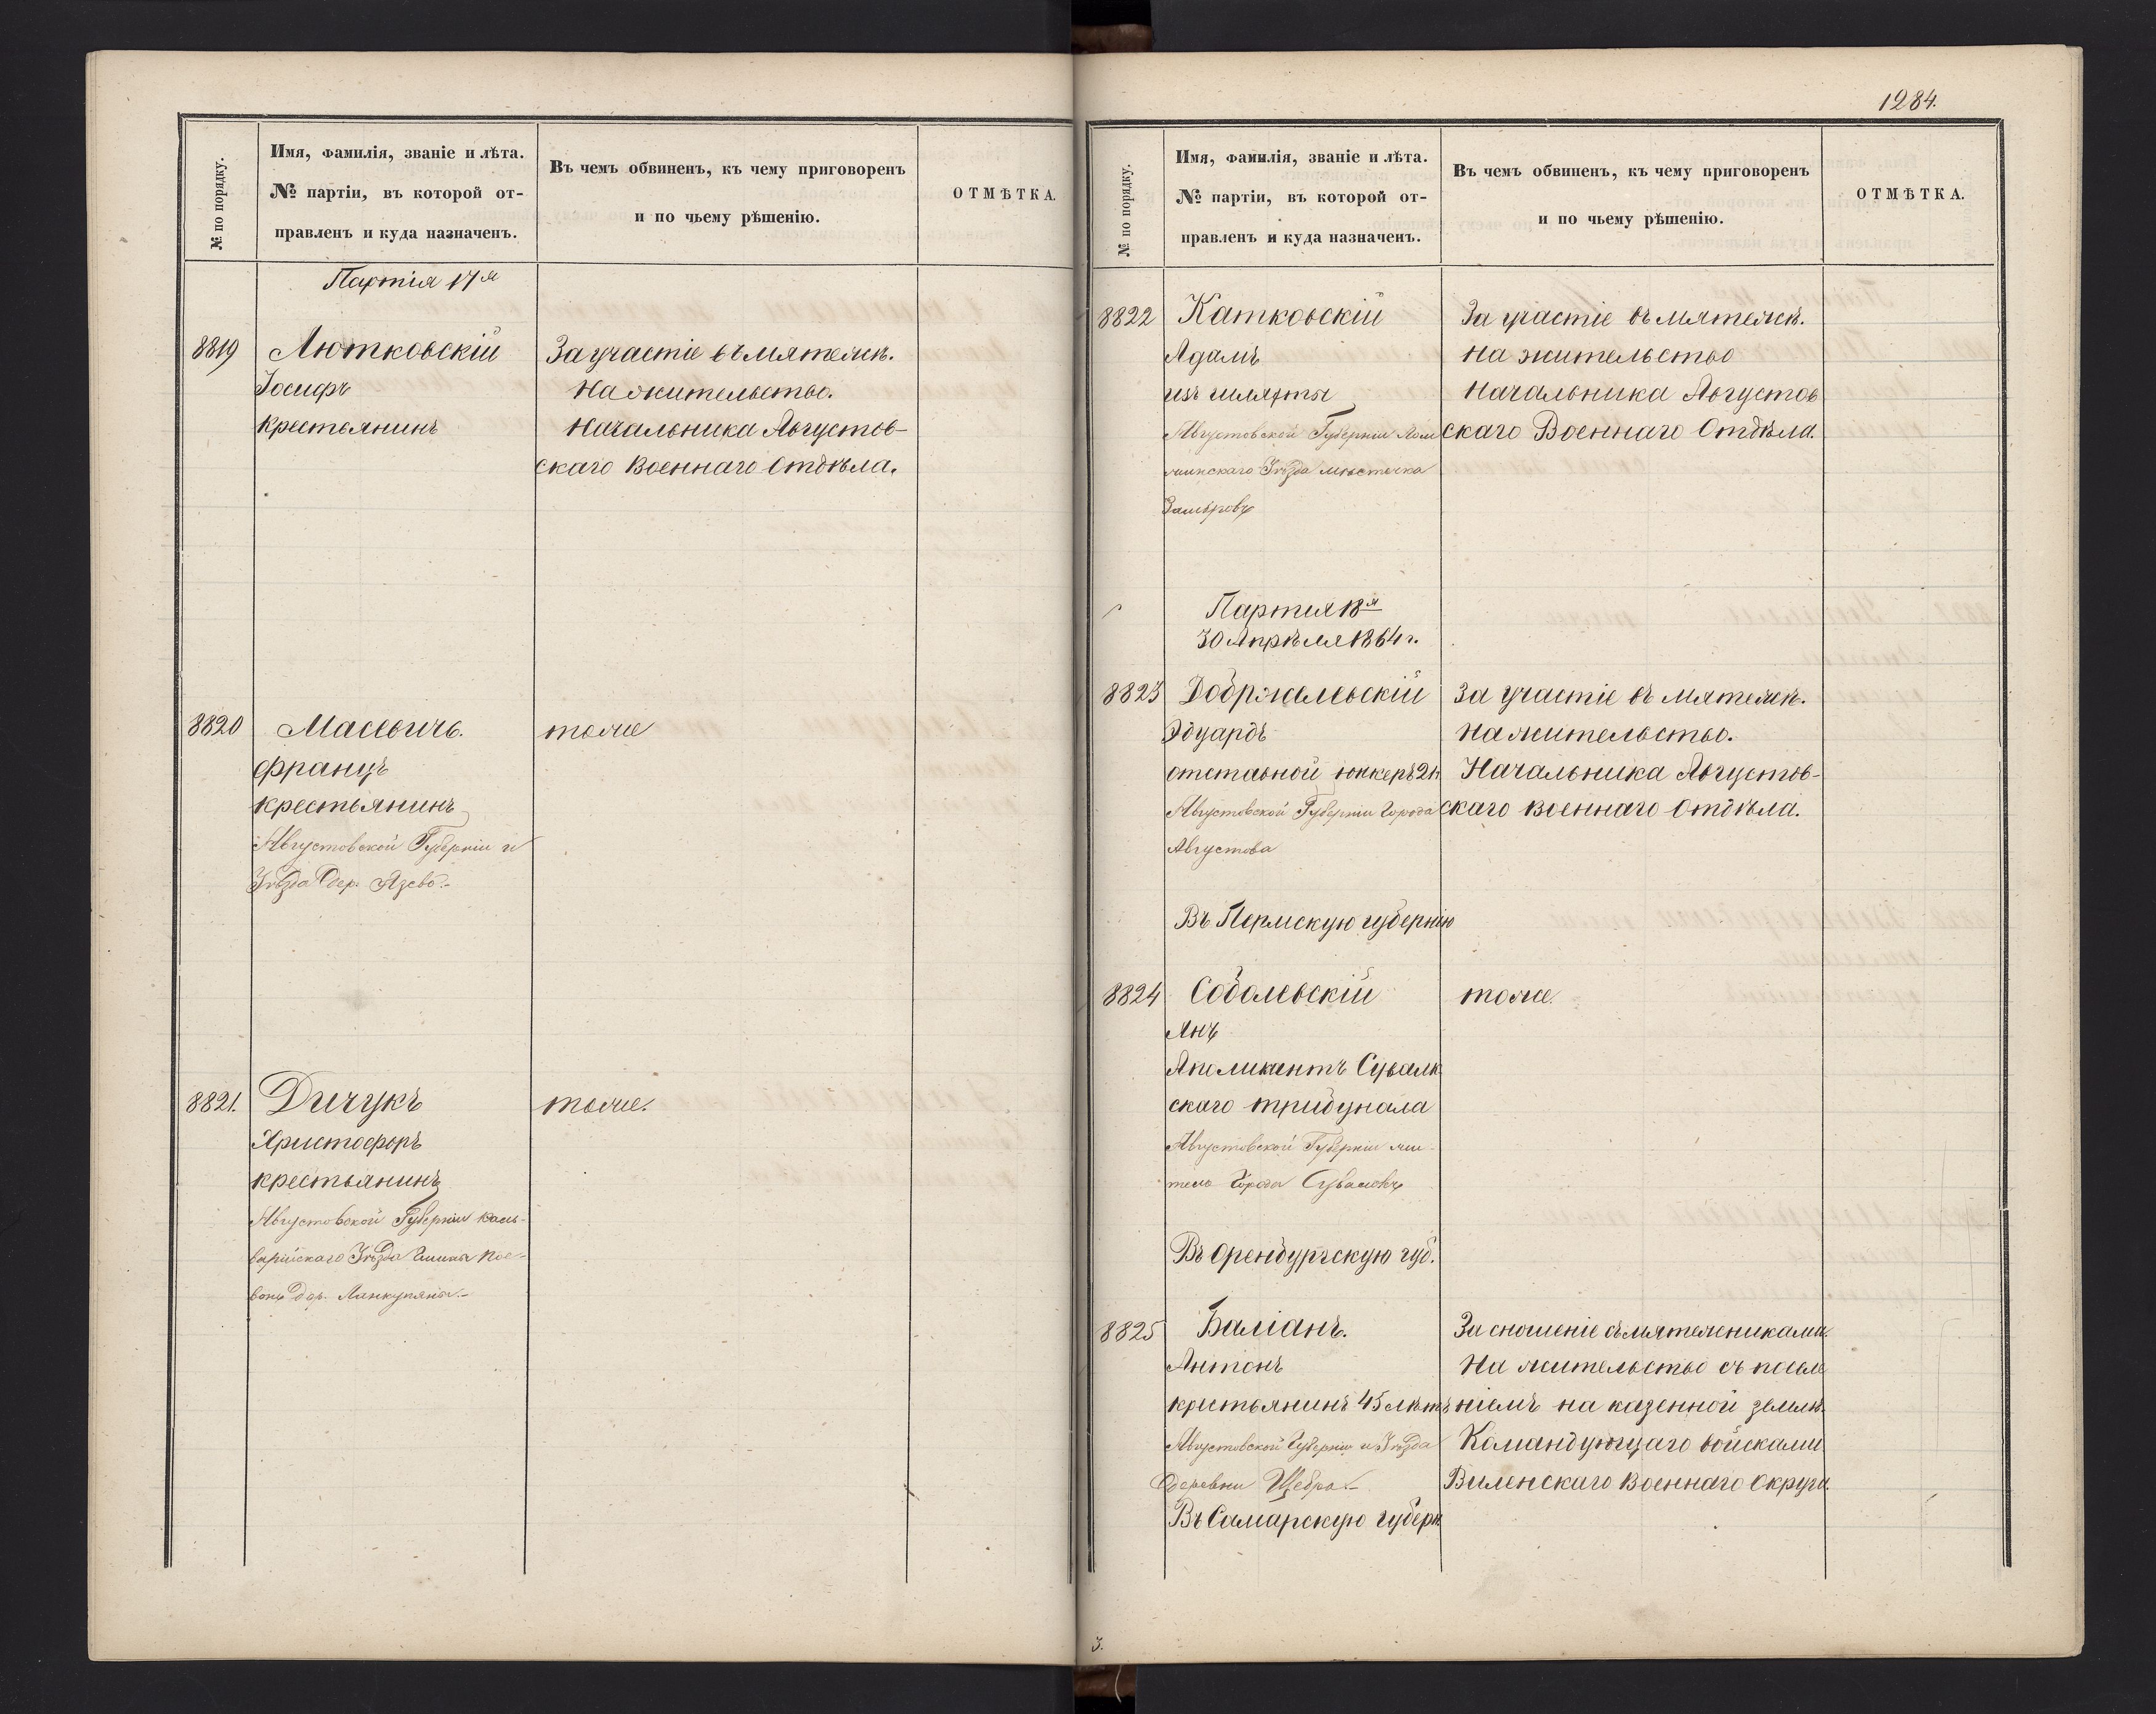 № по порядку.
Имя, фамилія, званіе и лѣта.
№ партіи, въ которой от-
правленъ и куда назначенъ.
Въ чемъ обвиненъ, къ чему приговоренъ
и по чьему рѣшенію.
ОТМѢТКА.
Партія 17я
8819
Лютковскій
Іосифъ
крестьянинъ
За участіе въ мятежѣ.
На жительство.
Начальника Августов-
скаго Военнаго Отдѣла.
8820
Масевичъ.
Францъ
крестьянинъ
Августовской Губерніи и
Уѣзда дер. Язево.-
тоже
8821.
Дичукъ
Христофоръ
крестьянинъ
Августовской Губерніи Каль-
варійскаго Уѣзда Гмины
дер.
тоже.
1284.
№ по порядку.
Имя, фамилія, званіе и лѣта.
№ партіи, въ которой от-
правленъ и куда назначенъ.
Въ чемъ обвиненъ, къ чему приговоренъ
и по чьему рѣшенію.
ОТМѢТКА.
8822
Катковскій
Адамъ
изъ шляхты
Августовской Губерніи Лом
жинскаго Уѣзда мѣстечка
За участіе въ мятежѣ.
на жительство
Начальника Августов
скаго Военнаго Отдѣла.
Партия 18я
30 Апрѣля 1864 г.
8823
Добржалевскій
Эдуардъ
отставной юнкеръ
Августовской Губерніи Города
Августова
Въ Пермскую губернію
За участіе въ мятежѣ.
на жительство.
Начальника Августов-
скаго Военнаго Отдѣла.
8824
Соболевскій
Янъ
Апликантъ Сувалк
скаго трибунала
Августовской Губерніи жи-
тель Города Сувалокъ
Въ Оренбургскую губ.
тоже.
8825
Баліанъ.
Антонъ
крестьянинъ 45 лѣтъ
Августовской Губерніи и Уѣзда
деревни Щебра.-
Въ Самарскую губерн
За сношеніе съ мятежниками.
На жительство съ посѣле
ніемъ на казенной землѣ.
Командующаго войсками
Виленскаго Военнаго Округа.
3.